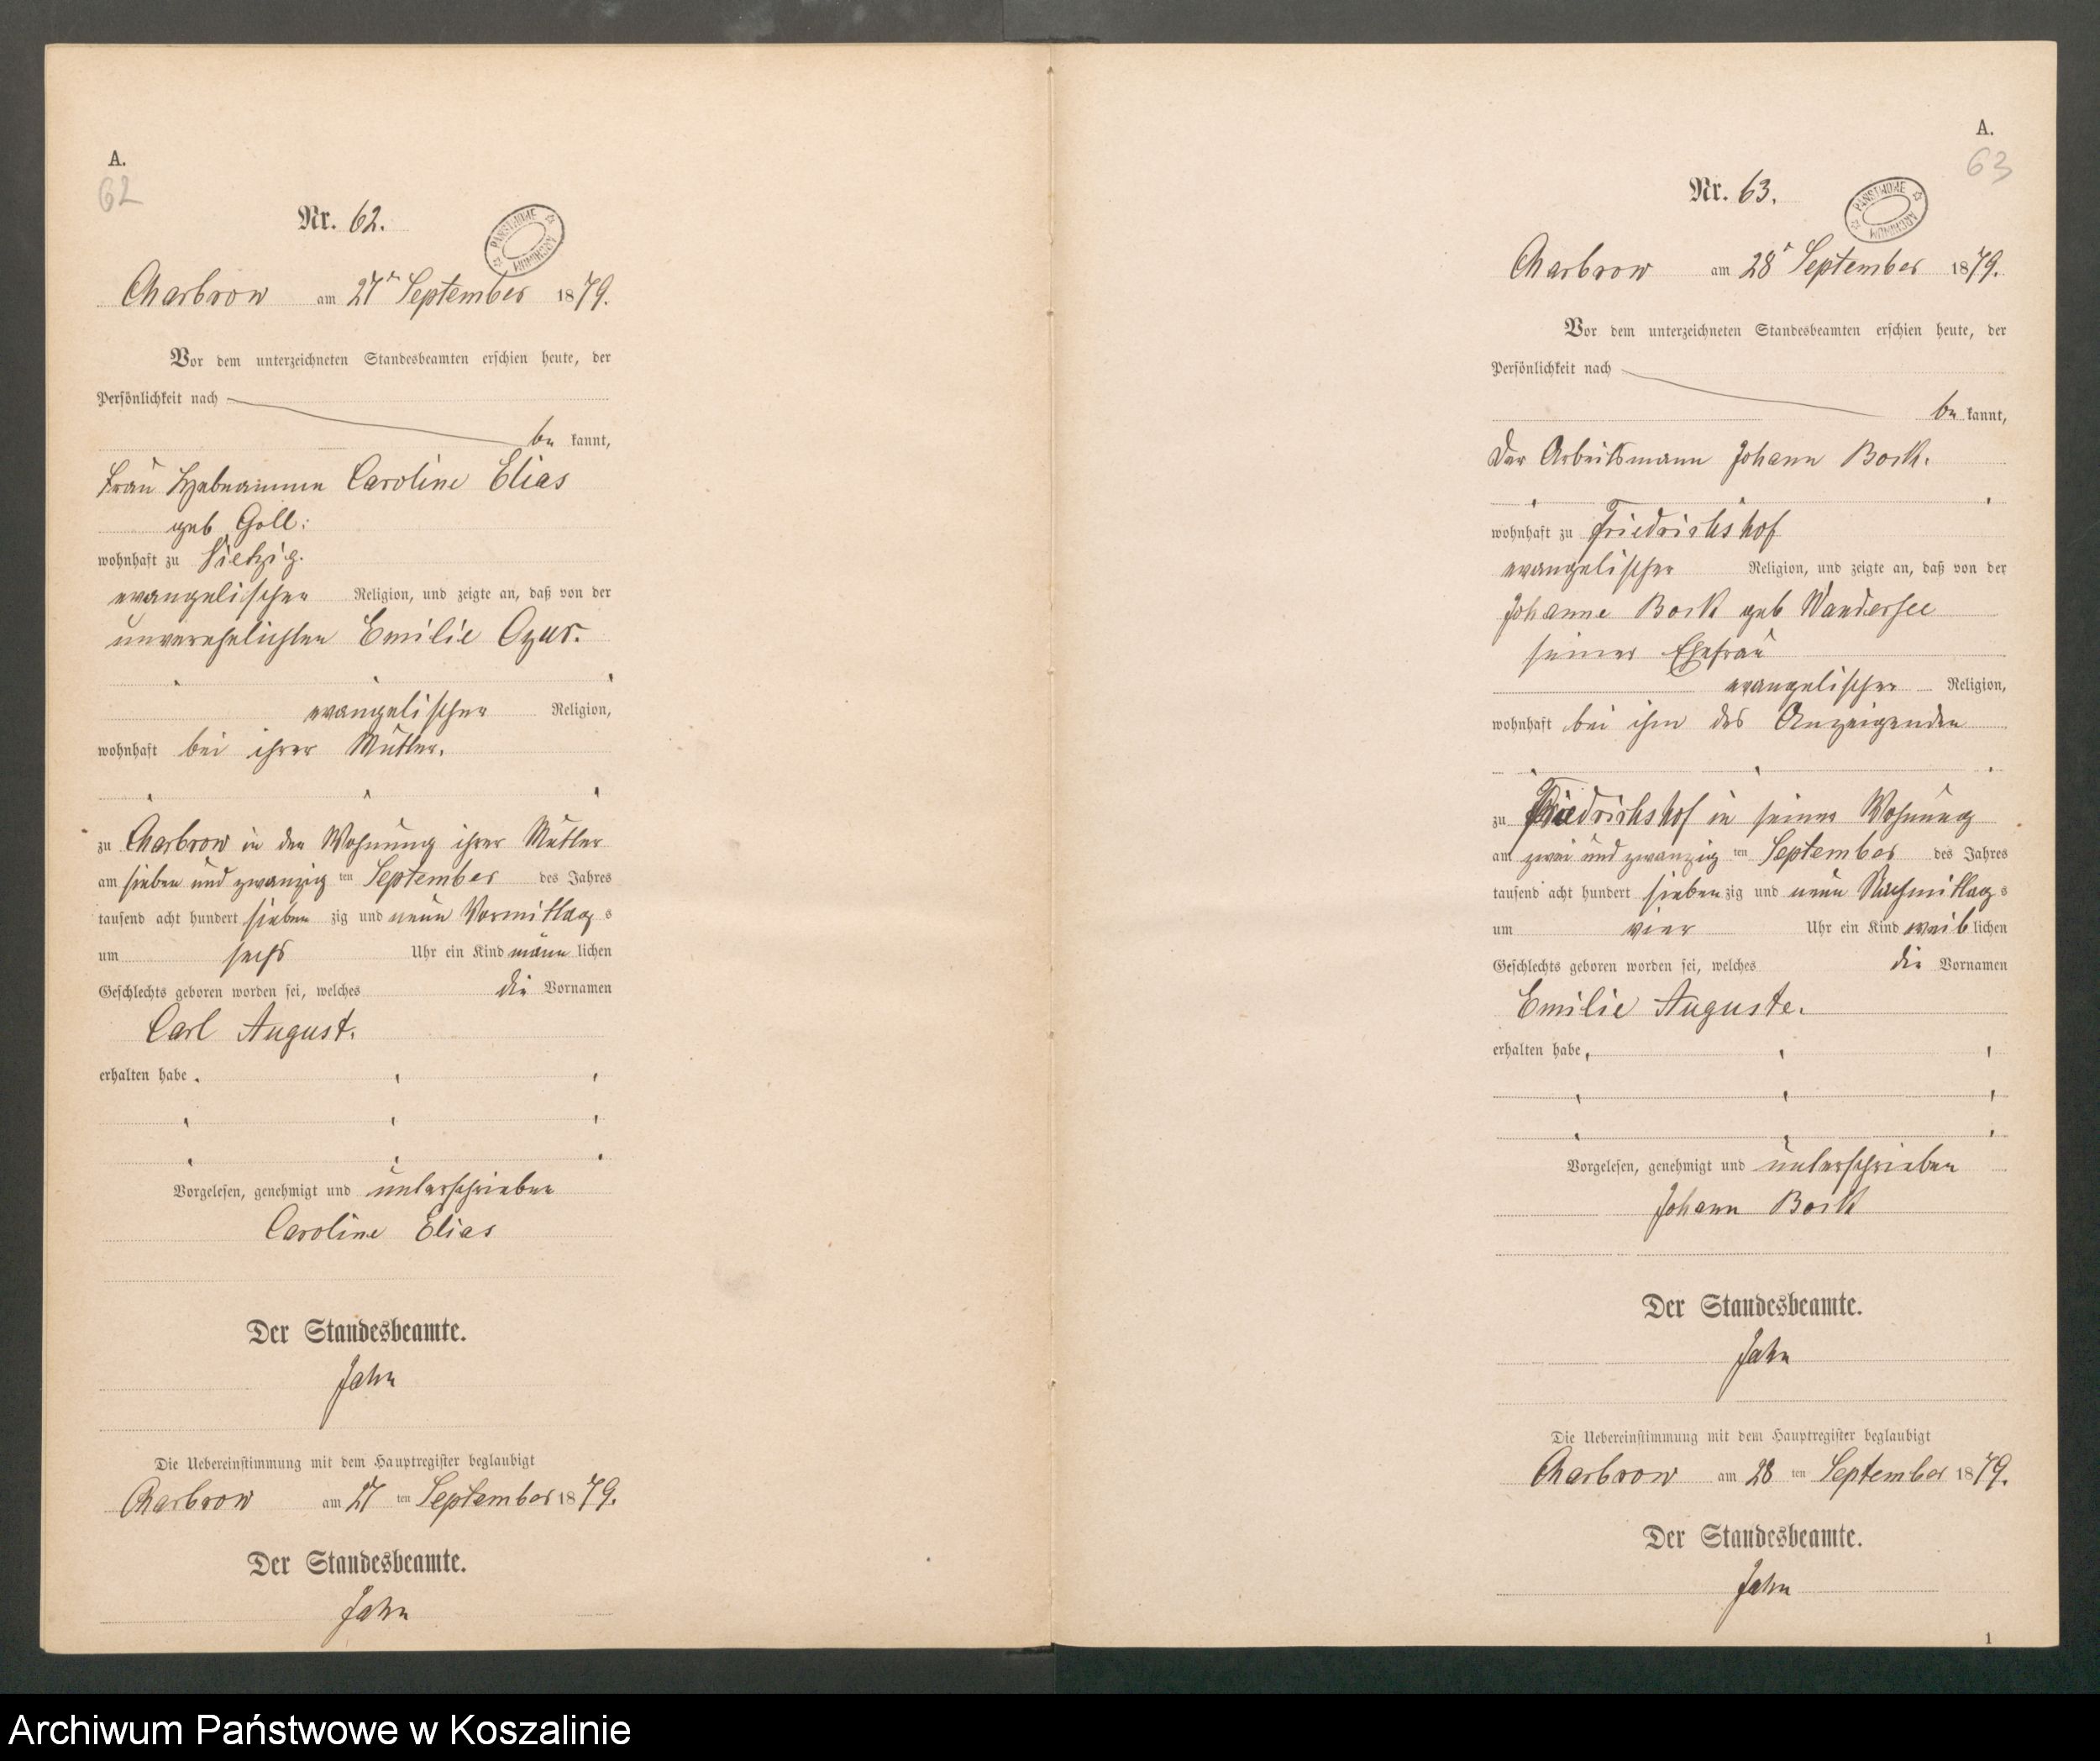 A.
62
Nr. 62.
PAŃSTWOWE ARCHIWUM
Charbrow am 27ᵗ September 1879.
Vor dem unterzeichneten Standesbeamten erschien heute, der
Persönlichkeit nach
be kannt,
Frau Hebeamme Caroline Elias
geb Goll:
wohnhaft zu Vietzig.
evangelischer Religion, und zeigte an, daß von der
unverehelichten Emilie
evangelischer Religion,
wohnhaft bei ihrer Mutter.
zu Charbrow in der Wohnung ihrer Mutter
am sieben und zwanzig ten September des Jahres
tausend acht hundert sieben zig und neun Vormittag s
um sechs Uhr ein Kind männ lichen
Geschlechts geboren worden sei, welches die Vornamen
Carl August.
erhalten habe.
Vorgelesen, genehmigt und unterschrieben
Caroline Elias
Der Standesbeamte.
Jahn
Die Uebereinstimmung mit dem Hauptregister beglaubigt
Charbrow am 27 ten September 1879.
Der Standesbeamte.
Jahn
A.
63
Nr. 63.
PAŃSTWOWE ARCHIWUM
Charbrow am 28ᵗ September 1879.
Vor dem unterzeichneten Standesbeamten erschien heute, der
Persönlichkeit nach
be kannt,
Der Arbeitsmann Johann Bork.
wohnhaft zu Friedrichshof
evangelischer Religion, und zeigte an, daß von der
Johanne Bork geb Wandersee
seiner Ehefrau
evangelischer Religion,
wohnhaft bei ihm des Anzeigenden
zu Friedrichshof in seiner Wohnung
am zwei und zwanzig ten September des Jahres
tausend acht hundert sieben zig und neun Nachmittag s
um vier Uhr ein Kind weib lichen
Geschlechts geboren worden sei, welches die Vornamen
Emilie Auguste.
erhalten habe,
Vorgelesen, genehmigt und unterschrieben
Johann Bork
Der Standesbeamte.
Jahn
Die Uebereinstimmung mit dem Hauptregister beglaubigt
Charbrow am 28 ten September 1879.
Der Standesbeamte.
Jahn
1
Archiwum Państwowe w Koszalinie